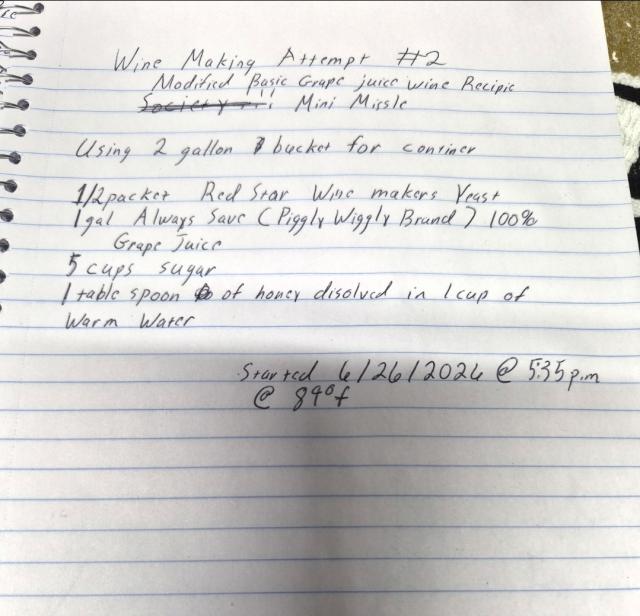 Wine Making Attempt #2
Modified Basic Grape juice Wine Recipie
Society !! Mini Missle
Using 2 gallon bucket for continer
1/2 packet Red Star Wine makers Yeast
1 gal Always Save (Piggly Wiggly Brand) 100%
Grape Juice
5 cups sugar
1 table spoon of honey disolved in 1 cup of
Warm Water
Started 6/26/2026 @ 5:35 p.m
@ 89°f